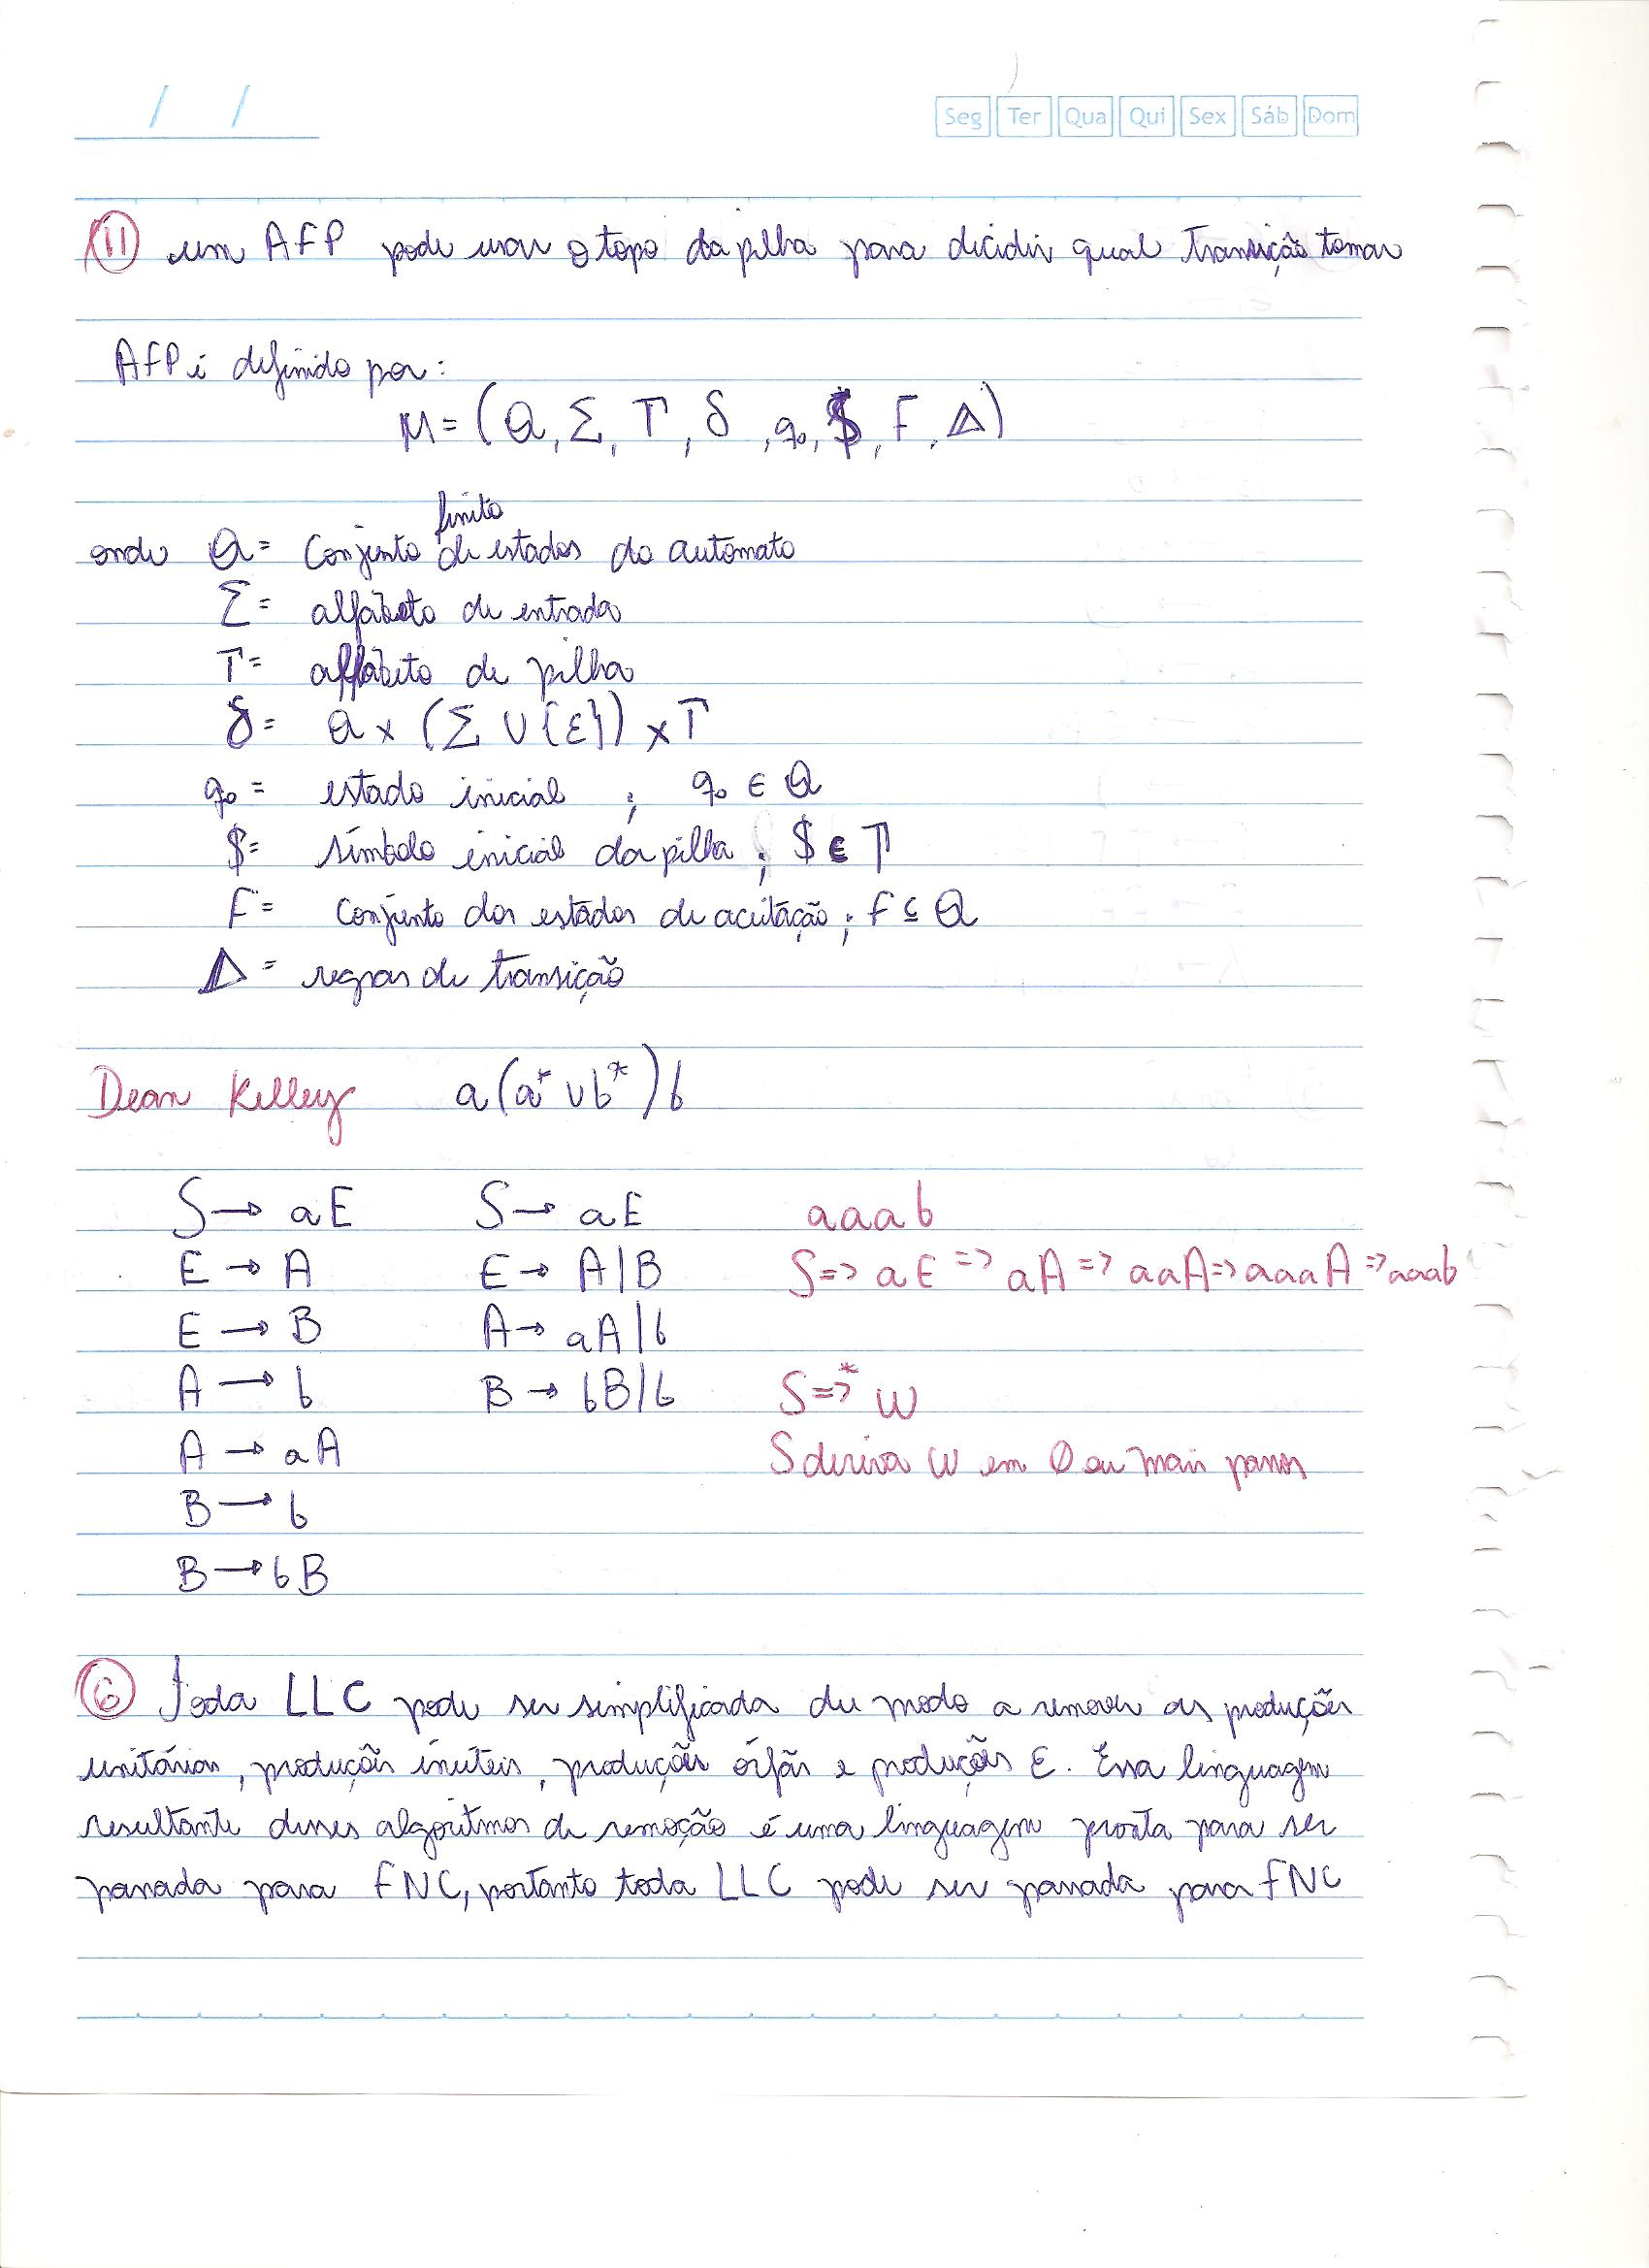 / /
Seg Ter Qua Qui Sex Sáb Dom
11 um AFP pode usar o topo da pilha para decidir qual transição tomar
AFP é definido por:
M = (Q, Σ, Γ, δ, q₀, $, F, Δ)
finito
onde Q = Conjunto de estados do automato
Σ = alfabeto de entrada
Γ = alfabeto de pilha
δ = Q x (Σ ∪ {ε}) x Γ
q₀ = estado inicial ; q₀ ∈ Q
$ = símbolo inicial da pilha ; $ ∈ Γ
F = Conjunto dos estados de aceitação ; F ⊆ Q
Δ = regras de transição
Dean Kelley a(a* ∪ b*)b
S → aE S → aE aaab
E → A E → A|B S => aE => aA => aaA => aaaA => aaab
E → B A → aA|b
A → b B → bB|b S =>* w
A → aA S deriva w em 0 ou mais passos
B → b
B → bB
6 Toda LLC pode ser simplificada de modo a remover as produções
unitárias, produções inúteis, produções órfãs e produções ε. Essa linguagem
resultante desses algoritmos de remoção é uma linguagem pronta para ser
passada para FNC, portanto toda LLC pode ser passada para FNC